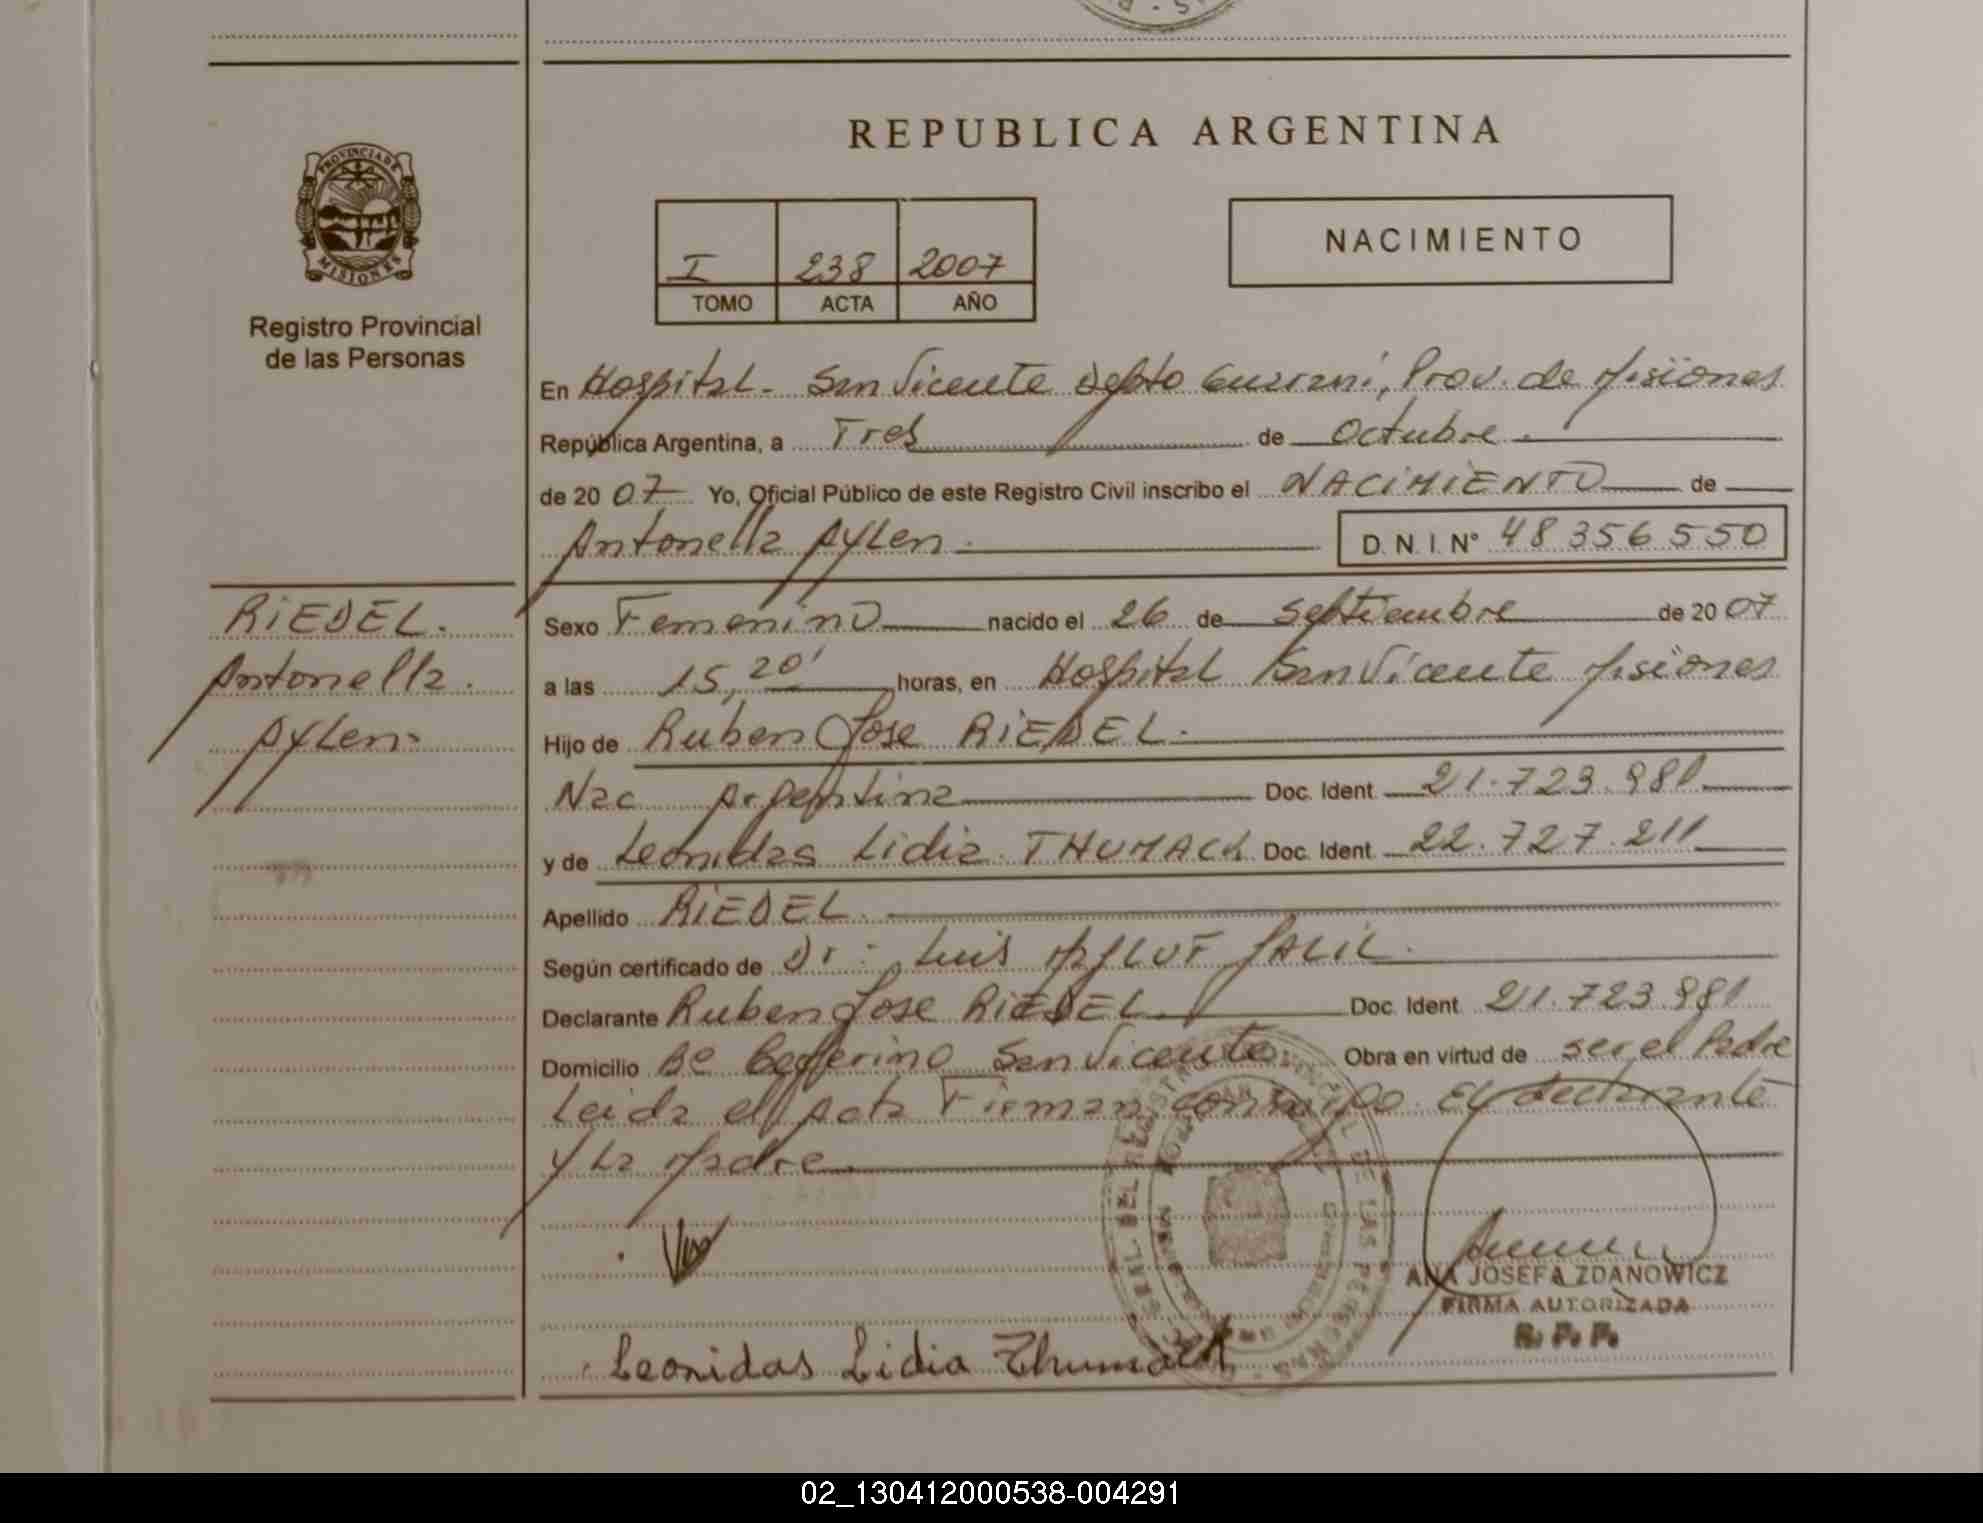 REPUBLICA ARGENTINA
PROVINCIA DE
MISIONES
Registro Provincial
de las Personas
I 238 2007
TOMO ACTA AÑO
NACIMIENTO
En Hospital - San Vicente Depto Guarani, Prov. de Misiones
República Argentina, a Tres de Octubre
de 2007 Yo, Oficial Público de este Registro Civil inscribo el NACIMIENTO de
Antonella Aylen. D. N. I. N° 48356550
RIEDEL.
Antonella
Aylen
Sexo Femenino nacido el 26 de Septiembre de 2007
a las 15,20' horas, en Hospital San Vicente Misiones
Hijo de Ruben Jose RIEDEL.
Nac Argentina Doc. Ident. 21.723.981
y de Leonidas Lidia THUMACK Doc. Ident. 22.727.211
Apellido RIEDEL.
Según certificado de Dr: Luis JALIL.
Declarante Ruben Jose RIEDEL Doc. Ident. 21.723.981
Domicilio Bº Ceferino San Vicente Obra en virtud de ser el Padre
Leida el Acta Firman conmigo El declarante
y la Madre.
ANA JOSEFA ZDANOWICZ
FIRMA AUTORIZADA
R. P. P.
Leonidas Lidia Thumack
02_130412000538-004291